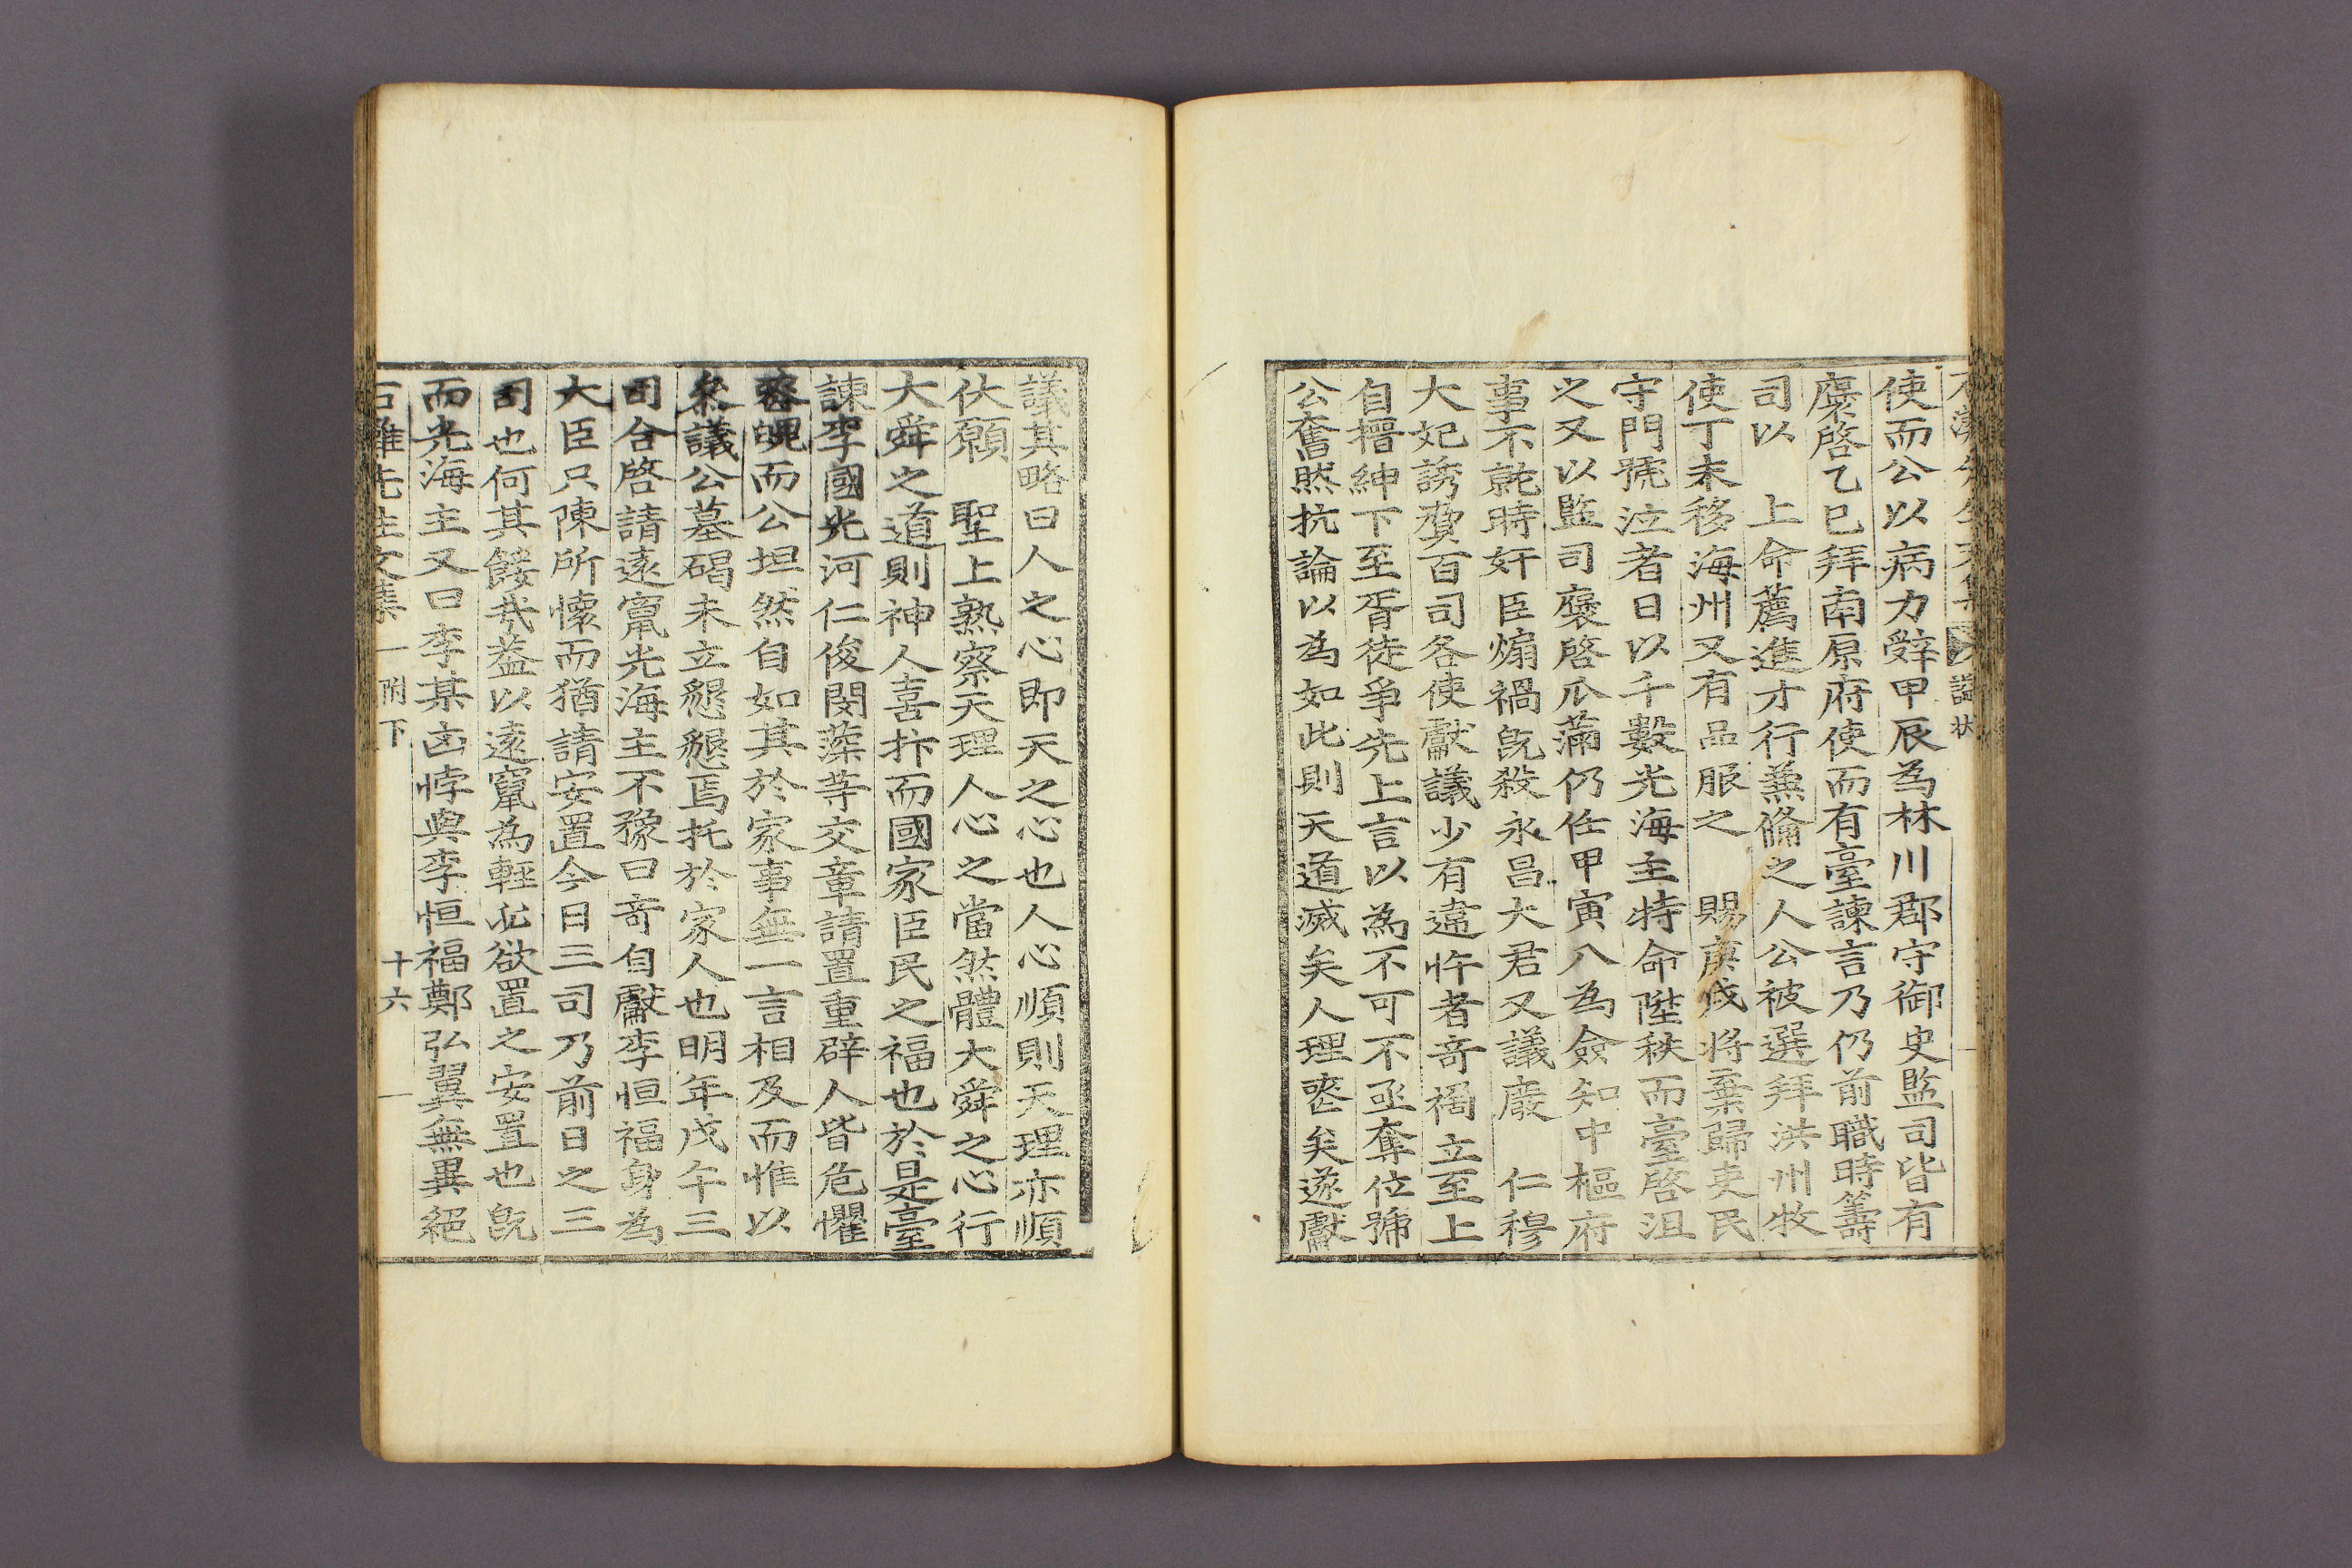 使而公以病力辭甲辰為林川郡守御史監司皆有
褒啓乙巳拜南原府使而有臺諫言乃仍前職時籌
司以 上命薦進才行兼備之人公被選拜洪州牧
使丁未移海州又有品服之 賜庚戌將棄歸吏民
守門號泣者日以千數光海主特命陞秩而臺啓沮
之又以監司褒啓瓜滿仍任甲寅入為僉知中樞府
事不就時奸臣煽禍旣殺永昌大君又議廢 仁穆
大妃誘脅百司各使獻議少有違忤者奇禍立至上
自搢紳下至胥徒爭先上言以為不可不亟奪位號
公奮然抗論以為如此則天道滅矣人理斁矣遂獻
議其略曰人之心即天之心也人心順則天理亦順
伏願 聖上熟察天理人心之當然體大舜之心行
大舜之道則神人喜抃而國家臣民之福也於是臺
諫李國光河仁俊閔藻等交章請置重辟人皆危懼
而公坦然自如其於家事無一言相及而惟以
參議公墓碣未立懇懇焉托於家人也明年戊午三
司合啓請遠竄光海主不豫曰奇自獻李恒福身為
大臣只陳所懷而猶請安置今日三司乃前日之三
司也何其餒哉蓋以遠竄為輕必欲置之安置也旣
而光海主又曰李某凶悖與李恒福鄭弘翼無異絕
先生文集 附下 十六